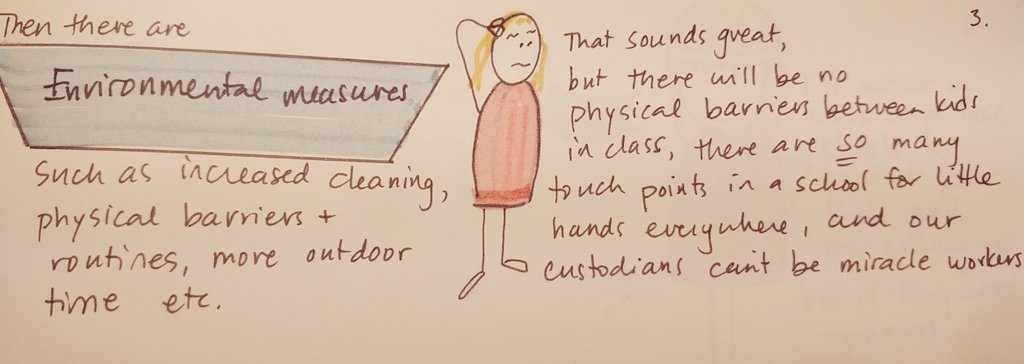 Then there are
Environmental measures
Such as increased cleaning,
physical barriers +
routines, more outdoor
time etc.
3.
That sounds great,
but there will be no
physical barriers between kids
in class, there are so many
touch points in a school for little
hands everywhere, and our
custodians can't be miracle workers